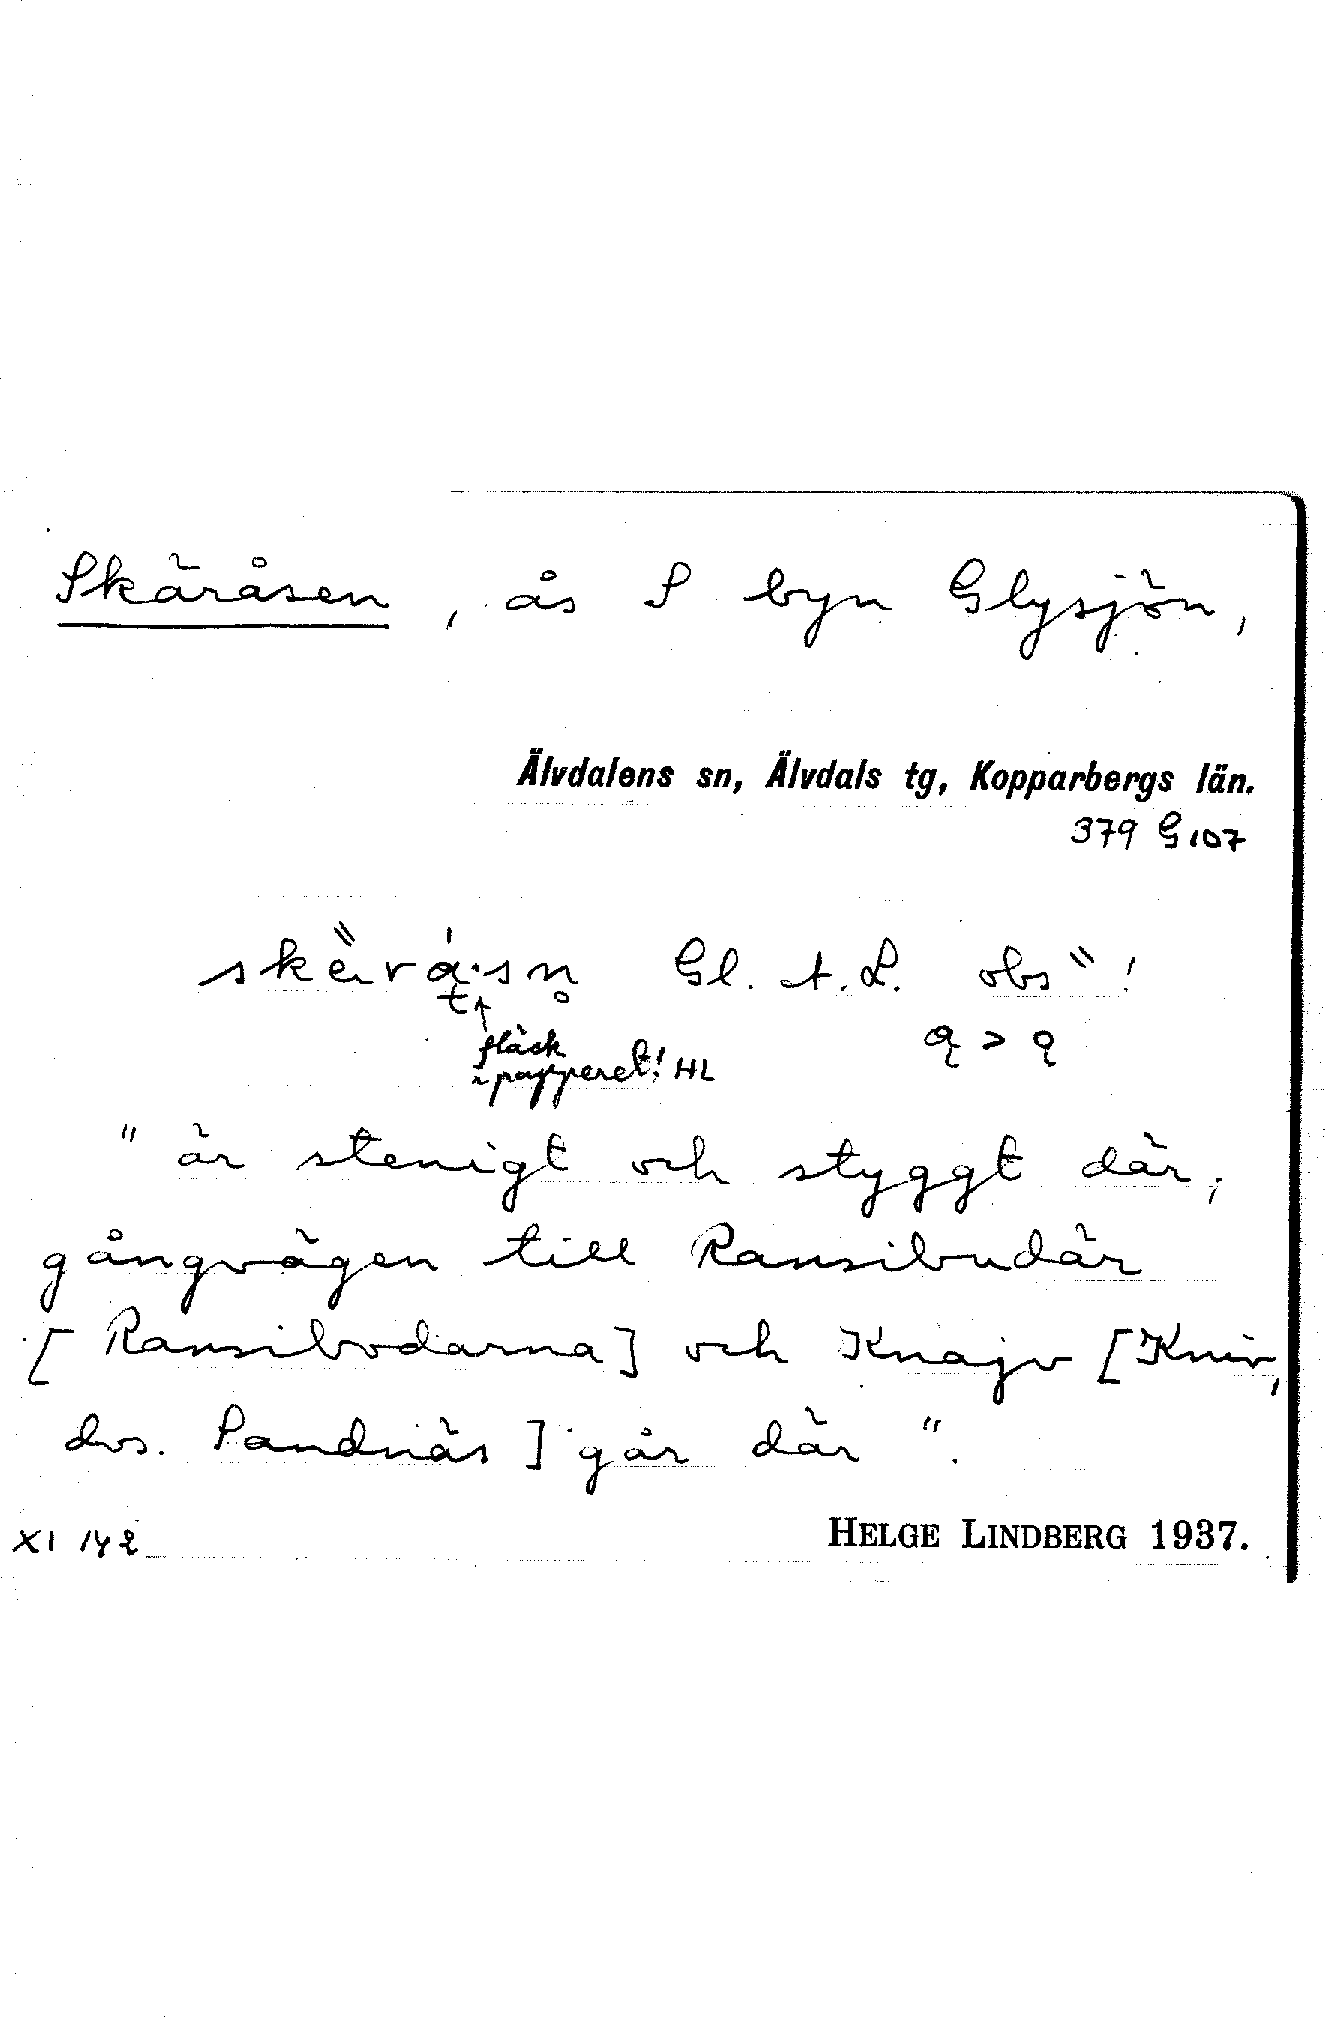 Skäråsen, ås S byn Glysjön,
Älvdalens sn, Älvdals tg, Kopparbergs län.
379 G 107
Gl. A. L. obs "!
fläck
i papperet! HL
"är stenigt och styggt där,
gångvägen till Ransibudär
[Ransibodarna] och Knajv [Kniv,
dvs. Sandnäs] går där".
XI 142 HELGE LINDBERG 1937.